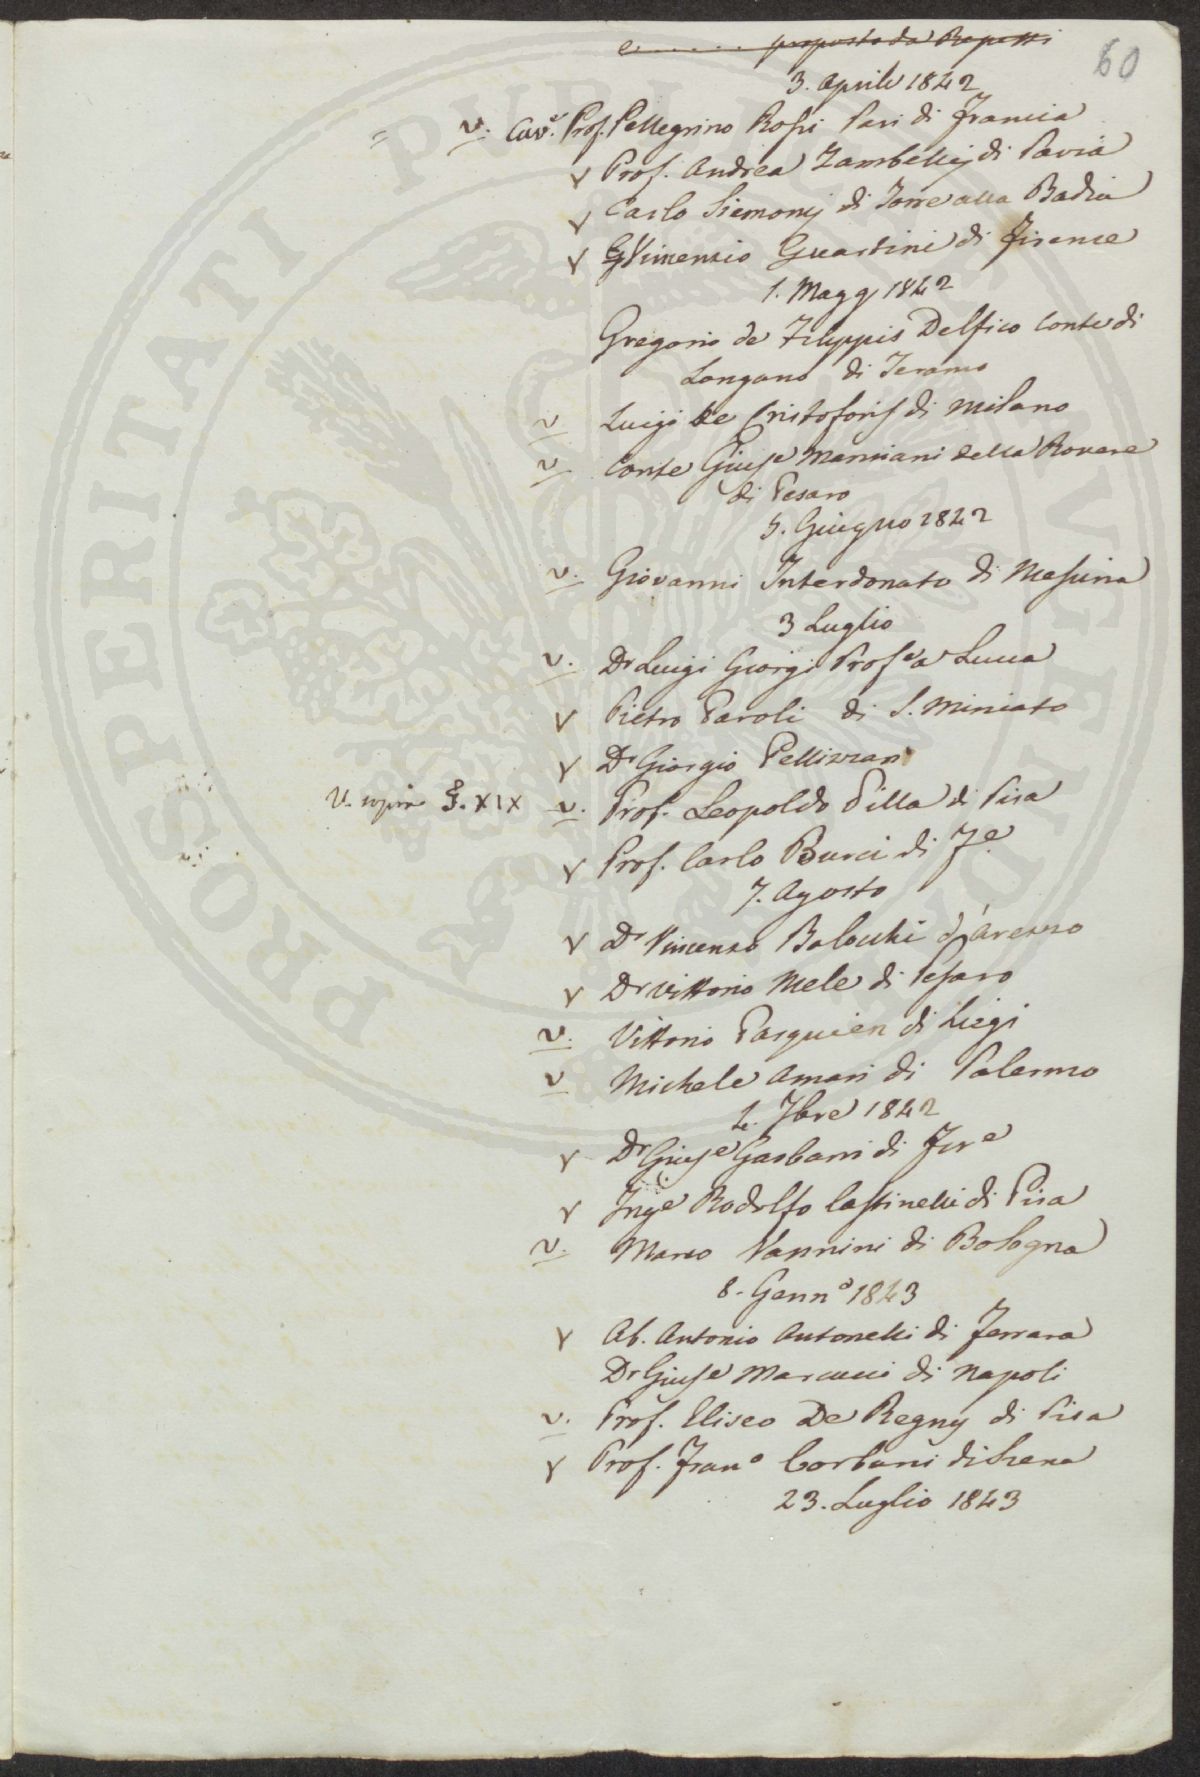 e ....... proposto da Repetti
60
3. Aprile 1842
v. Cav.e Prof. Pellegrino Rossi Pari di Francia
v Prof. Andrea Zambellij di Pavia
v Carlo Siemonj di Torre alla Badia
v G Vincenzio Guartini di Firenze
1. Magg 1842
Gregorio de Filippis Delfico Conte di
Longano di Teramo
v Luigi De Cristoforis di Milano
v Conte Giuse Mamiani della Rovere
di Pesaro
5. Giugno 1842
v. Giovanni Interdonato di Messina
3 Luglio
v. Dr Luigi Giorgi Profe a Lucca
v Pietro Paroli di S. Miniato
v Dr Giorgio Pellizzari
V. sopra §. XIX v. Prof. Leopoldo Pilla di Pisa
v Prof. Carlo Burci di Fe
7. Agosto
v Dr Vincenzo Balocchi d'Arezzo
v Dr Vittorio Mele di Pesaro
v. Vittorio Pasquier di Liegi
v Michele Amari di Palermo
4. 7bre 1842
v Dr Giuse Garbarri di Fire
v Inge Rodolfo Castinelli di Pisa
v. Marco Vannini di Bologna
8. Genno 1843
v Ab. Antonio Antonelli di Ferrara
Dr Giuse Marcucci di Napoli
v. Prof. Eliseo De Regny di Pisa
v Prof. Frano Corbani di Siena
23. Luglio 1843
PROSPERITATI PUBLICAE AUGENDAE